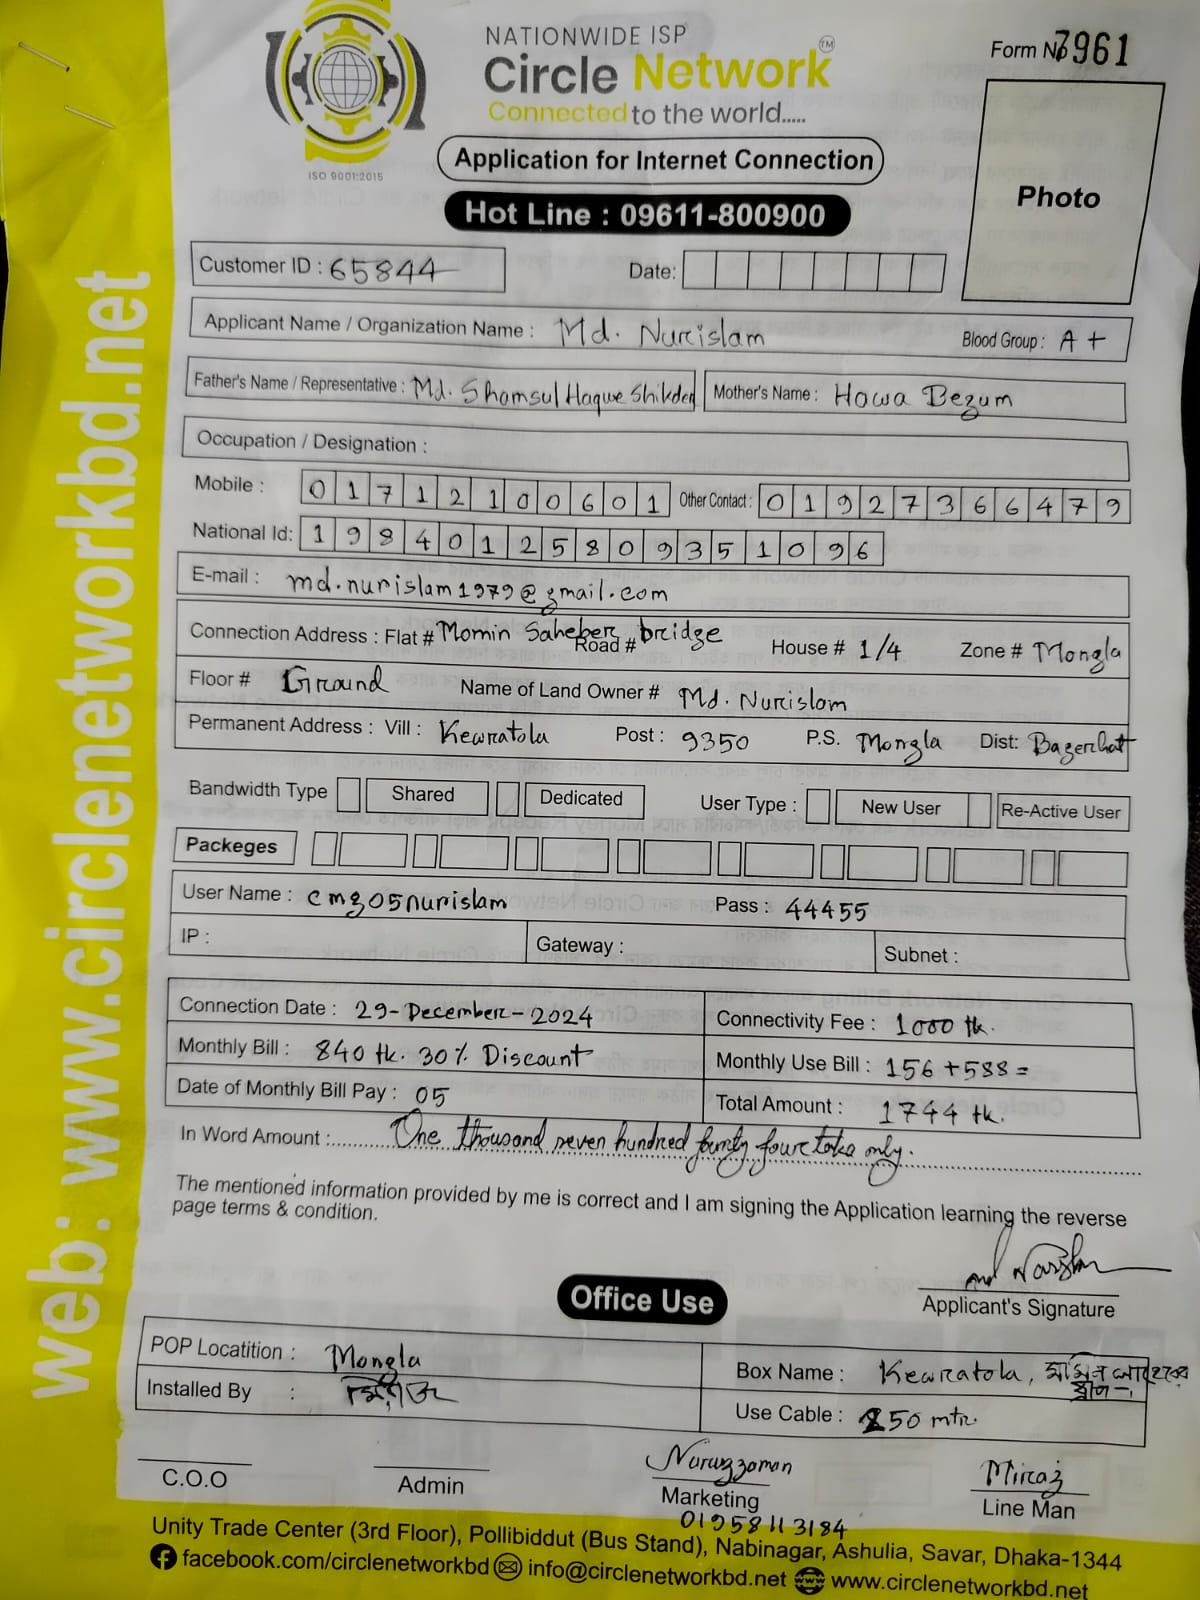 NATIONWIDE ISP
Circle Network™
Connected to the world.....
ISO 9001:2015
Form No 7961
Photo
Application for Internet Connection
Hot Line : 09611-800900
Customer ID : 65844
Date:
Applicant Name / Organization Name : Md. Nurislam Blood Group : A+
Father's Name / Representative : Md. Shamsul Haque Shikder Mother's Name : Hawa Begum
Occupation / Designation :
Mobile : 01712100601 Other Contact : 01927366479
National Id: 19840125809351096
E-mail : md.nurislam1979@gmail.com
Connection Address : Flat # Momin Saheber bridge Road # House # 1/4 Zone # Mongla
Floor # Ground Name of Land Owner # Md. Nurislam
Permanent Address : Vill : Kewratola Post : 9350 P.S. Mongla Dist: Bagerhat
Bandwidth Type Shared Dedicated User Type : New User Re-Active User
Packeges
User Name : cmg05nurislam Pass : 44455
IP : Gateway : Subnet :
Connection Date : 29-December-2024 Connectivity Fee : 1000 tk.
Monthly Bill : 840 tk. 30% Discount Monthly Use Bill : 156+588=
Date of Monthly Bill Pay : 05 Total Amount : 1744 tk.
In Word Amount :.......... One thousand seven hundred fourty four taka only.
The mentioned information provided by me is correct and I am signing the Application learning the reverse
page terms & condition.
Applicant's Signature
Office Use
POP Locatition : Mongla Box Name : Kewratola,
Installed By : Use Cable : 250 mtr.
C.O.O Admin Nuruzzaman Marketing Miraz Line Man
01958113184
Unity Trade Center (3rd Floor), Pollibiddut (Bus Stand), Nabinagar, Ashulia, Savar, Dhaka-1344
facebook.com/circlenetworkbd info@circlenetworkbd.net www.circlenetworkbd.net
web: www.circlenetworkbd.net